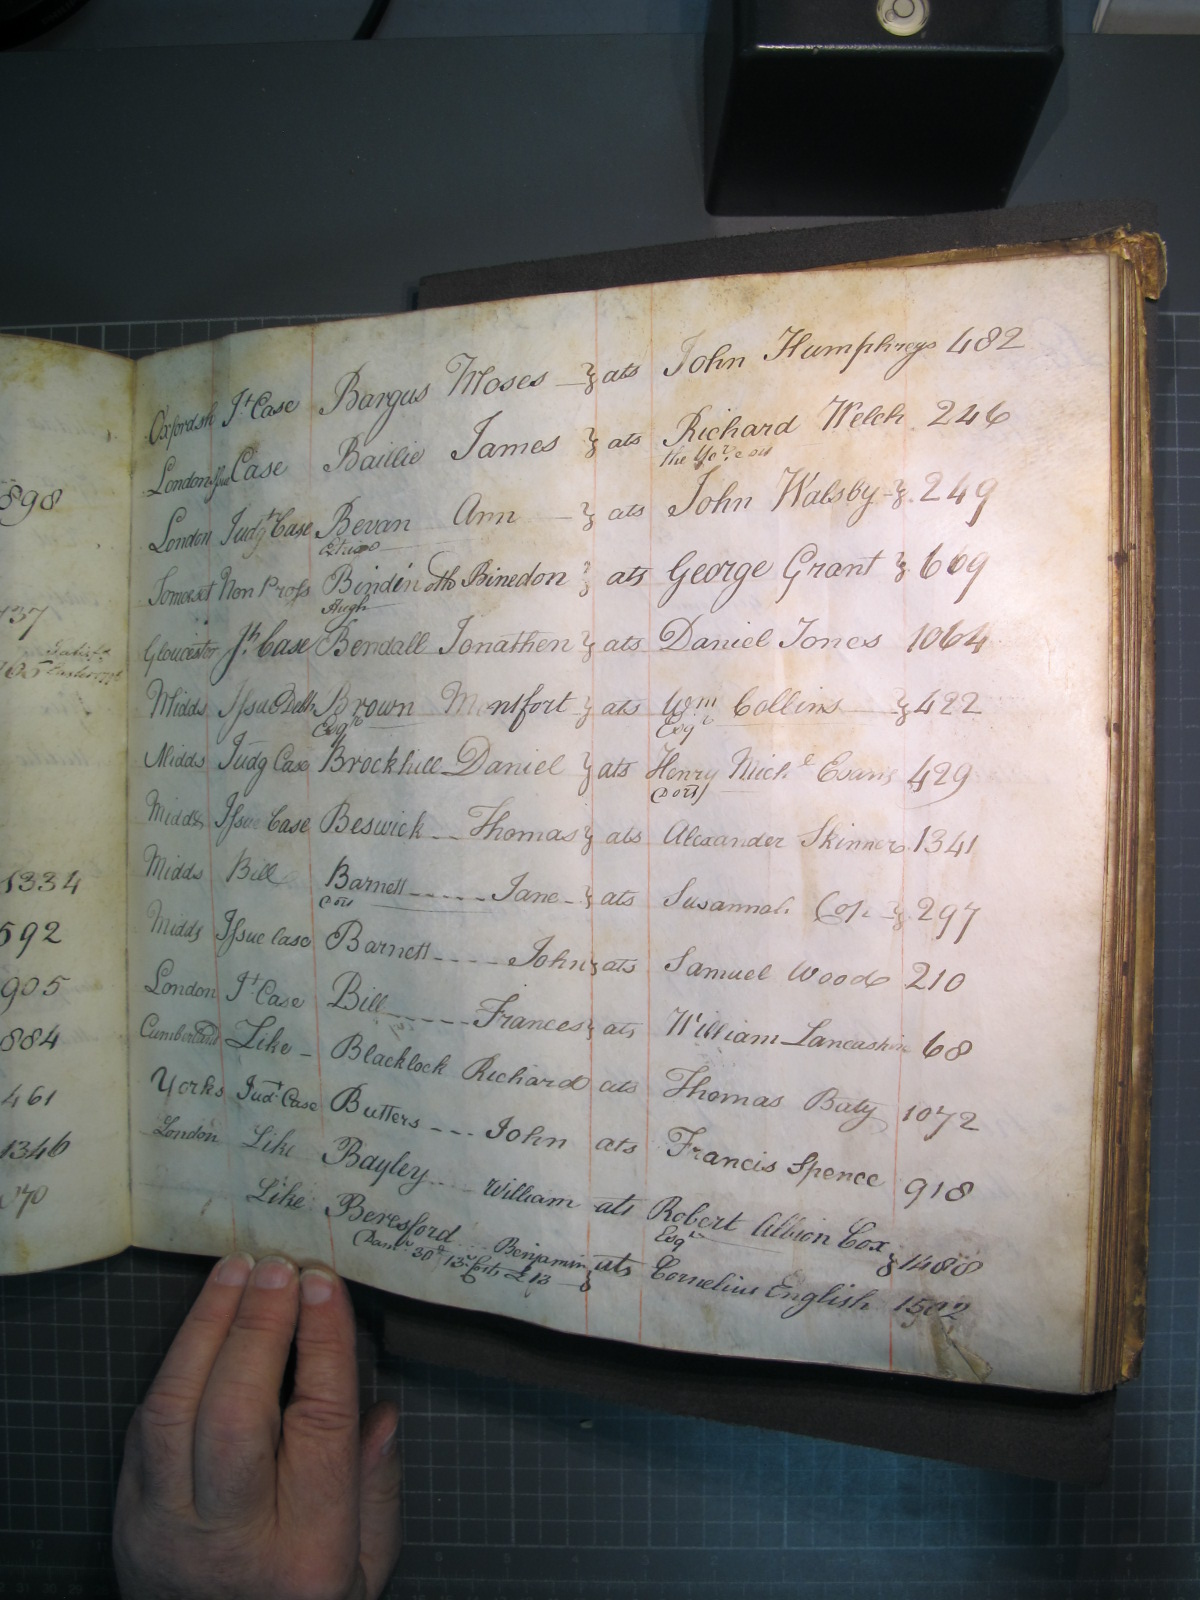 898
137
105
1334
592
905
884
461
1346
Oxfordsh Jt Case Bargus Moses ats John Humphreys 482
London Issue Case Baillie James ats Richard Welch 246
the
London Judgt Case Bevan Ann ats John Walsby 249
Somerset Non Pross Bindin oth Binedon ats George Grant 669
Hugh
Gloucester Jt Case Bendall Jonathen ats Daniel Jones 1064
Midds Issue Debt Brown Montfort ats Wm Collins 422
Esqr Esqr
Midds Judg Case Brockhill Daniel ats Henry Michl Evans 429
Midds Issue Case Beswick Thomas ats Alexander Skinner 1341
Midds Bill Barnett Jane ats Susannah Cope 297
Midds Issue Case Barnett John ats Samuel Wood 210
London Jt Case Bill Frances ats William Lancashire 68
Cumberland Like Blacklock Richard ats Thomas Baty 1072
Yorks Judt Case Butters John ats Francis Spence 918
London Like Bayley William ats Robert Albion Cox 1488
Esqr
Like Beresford Benjamin ats Cornelius English 1502
(Damr 30s 13 £13